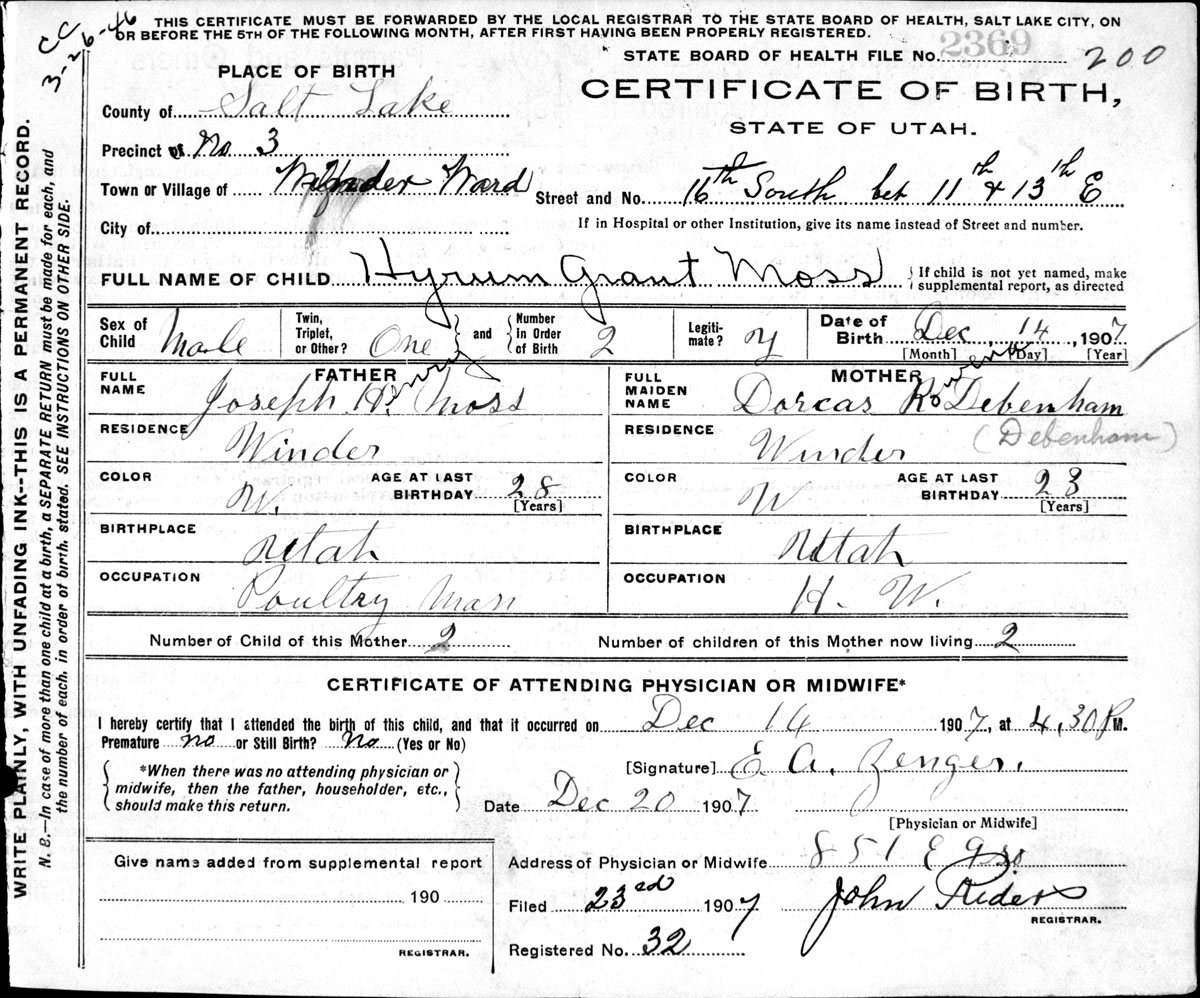 THIS CERTIFICATE MUST BE FORWARDED BY THE LOCAL REGISTRAR TO THE STATE BOARD OF HEALTH, SALT LAKE CITY, ON
OR BEFORE THE 5TH OF THE FOLLOWING MONTH, AFTER FIRST HAVING BEEN PROPERLY REGISTERED.
CC
3-26-46
STATE BOARD OF HEALTH FILE No. 2369
200
PLACE OF BIRTH
CERTIFICATE OF BIRTH,
STATE OF UTAH.
County of Salt Lake
Precinct No 3
Town or Village of Winder Ward
Street and No. 16th South bet 11th & 13th E
City of
If in Hospital or other Institution, give its name instead of Street and number.
FULL NAME OF CHILD Hyrum Grant Moss
{If child is not yet named, make
supplemental report, as directed
Sex of Child Male
Twin, Triplet, or Other? One
and
Number in Order of Birth 2
Legitimate? y
Date of Birth Dec 14, 1907
[Month] [Day] [Year]
FATHER
FULL NAME Joseph Henry Moss
RESIDENCE Winder
COLOR W.
AGE AT LAST BIRTHDAY 28
[Years]
BIRTHPLACE Utah
OCCUPATION Poultry Man
MOTHER
FULL MAIDEN NAME Dorcas Debenham
(Debenham)
RESIDENCE Winder
COLOR W
AGE AT LAST BIRTHDAY 23
[Years]
BIRTHPLACE Utah
OCCUPATION H. W.
Number of Child of this Mother 2
Number of children of this Mother now living 2
CERTIFICATE OF ATTENDING PHYSICIAN OR MIDWIFE*
I hereby certify that I attended the birth of this child, and that it occurred on Dec 14 1907, at 4,30 P M.
Premature no or Still Birth? No (Yes or No)
*When there was no attending physician or
midwife, then the father, householder, etc.,
should make this return.
[Signature] E. A. Zenger.
Date Dec 20 1907
[Physician or Midwife]
Give name added from supplemental report
190
REGISTRAR.
Address of Physician or Midwife 851 E 9 So
Filed 23rd 1907
John Rider
REGISTRAR.
Registered No. 32
WRITE PLAINLY, WITH UNFADING INK--THIS IS A PERMANENT RECORD.
N. B.—In case of more than one child at a birth, a SEPARATE RETURN must be made for each, and
the number of each, in order of birth, stated. SEE INSTRUCTIONS ON OTHER SIDE.